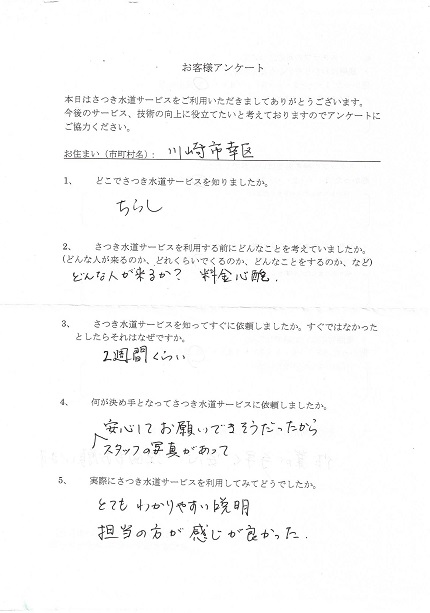 お客様アンケート
本日はさつき水道サービスをご利用いただきましてありがとうございます。
今後のサービス、技術の向上に役立てたいと考えておりますのでアンケートに
ご協力ください。
お住まい(市町村名):川崎市幸区
1、 どこでさつき水道サービスを知りましたか。
ちらし
2、 さつき水道サービスを利用する前にどんなことを考えていましたか。
(どんな人が来るのか、どれくらいでくるのか、どんなことをするのか、など)
どんな人が来るか? 料金心配.
3、 さつき水道サービスを知ってすぐに依頼しましたか。すぐではなかった
としたらそれはなぜですか。
2週間くらい
4、 何が決め手となってさつき水道サービスに依頼しましたか。
安心してお願いできそうだったから
スタッフの写真があって
5、 実際にさつき水道サービスを利用してみてどうでしたか。
とてもわかりやすい説明
担当の方が感じが良かった.